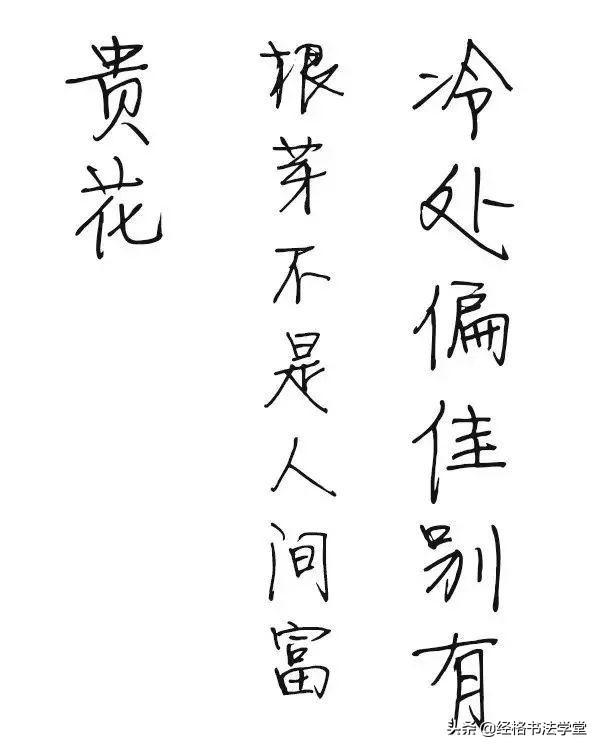 冷处偏佳别有
根芽不是人间富
贵花
头条@经格书法学堂